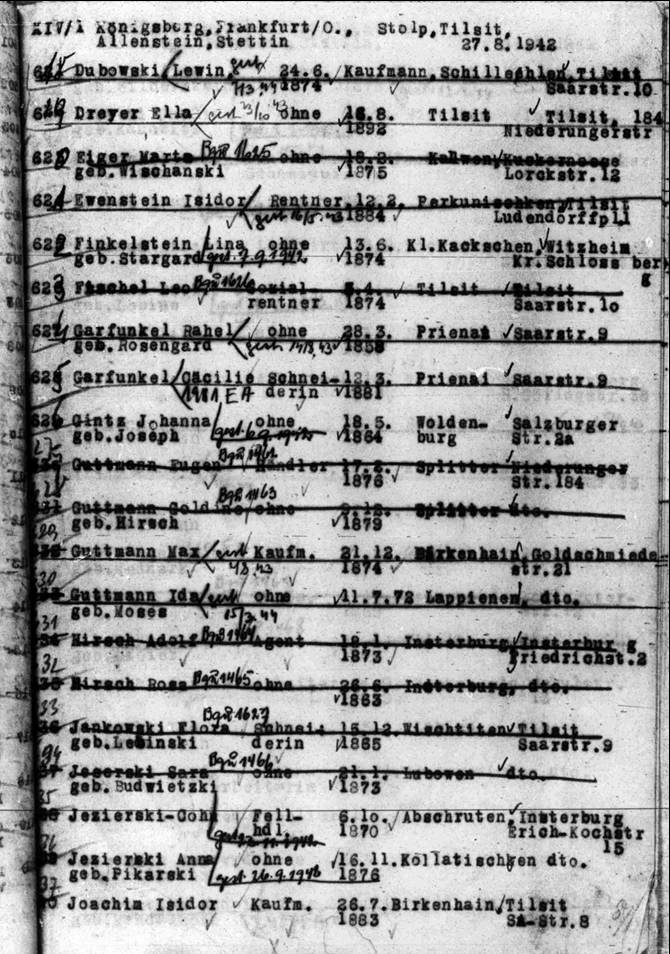 XIV/1 Königsberg, Frankfurt/O., Stolp, Tilsit,
Allenstein, Stettin 27.8.1942
Dubowski Lewin gest. 24.6. Kaufmann, Schillehlen, Tilsit
1874 Saarstr.10
Dreyer Ella gest. 23/10 43 ohne 16.8. Tilsit Tilsit, 184
1892 Niederungerstr
620 Eiger Marta BgĂĽ 1625 ohne 18.2. Kallwen, Kuckerneese
geb. Wischanski 1875 Lorckstr.12
621 Ewenstein Isidor Rentner, 12.2. Perkunischken, Tilsit
gest. 16/5. 43 1884 Ludendorffpl1
622 Finkelstein Lina ohne 13.6. Kl.Kackschen, Witzheim
geb. Stargard gest. 7.9.1942 1874 Kr. Schloss berg
623 Fischel Leo Sozial- Tilsit Tilsit
rentner 1874 Saarstr.10
624 Garfunkel Rahel ohne 28.3. Prienai Saarstr.9
geb. Rosengard gest. 1858
625 Garfunkel Cäcilie Schnei- 12.3. Prienai Saarstr.9
derin 1881
626 Gintz Johanna ohne 18.5. Wolden- Salzburger
geb. Joseph 1864 burg Str.2a
Guttmann Eugen Händler 17.2. Splitter Niederunger
1876 Str.184
Guttmann Goldine 1463 ohne Splitter dto.
geb. Hirsch 1879
Guttmann Max gest Kaufm. 21.12. Birkenhain, Goldschmiede-
1874 str.21
Guttmann Ida gest ohne 11.7.72 Lappienen, dto.
geb. Moses
Hirsch Adolf 1464 Agent 18.1. Insterburg, Insterburg
1873 Friedrichst.2
Hirsch Rosa 1465 ohne 26.6. Insterburg, dto.
1863
Jankowski Flora 1627 Schnei- 15.12. Wischtiten Tilsit
geb. Lewinski derin 1865 Saarstr.9
Sara 1466 ohne 21.1. Lubowen dto.
geb. Budwietzki 1873
Jezierski-Cohn Fell- 6.10. Abschruten, Insterburg
hdl. 1870 Erich-Kochstr
15
Jezierski Anna ohne 16.11. Kollatischken dto.
geb. Pikarski gest. 26.9.1942 1876
Joachim Isidor Kaufm. 26.7. Birkenhain, Tilsit
1883 SA-Str.8